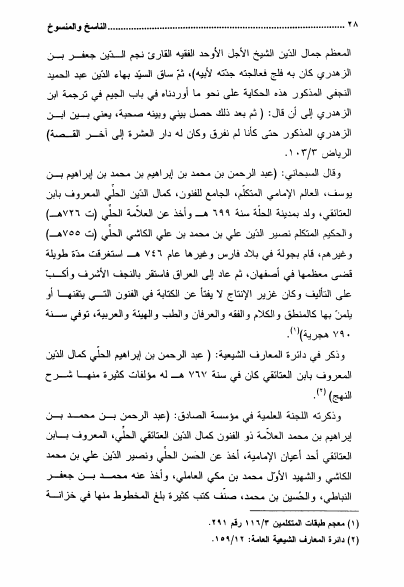 ٢٨ ............ الناسخ والمنسوخ
المعظم جمال الدّين الشيخ الأجل الأوحد الفقيه القارئ نجم الــدّين جعفــر بــن
الزهدري كان به فلج فعالجته جدّته لأبيه)، ثمّ ساق السيّد بهاء الدّين عبد الحميد
النجفي المذكور هذه الحكاية على نحو ما أوردناه في باب الجيم في ترجمة ابن
الزهدري إلى أن قال: ( ثم بعد ذلك حصل بيني وبينه صحبة، يعني بــين ابــن
الزهدري المذكور حتى كأنا لم نفرق وكان له دار العشرة إلى آخــر القــصة)
الرياض ١٠٣/٣.
وقال السبحاني: (عبد الرحمن بن محمد بن إبراهيم بن محمد بن إبراهيم بن
يوسف، العالم الإمامي المتكلّم، الجامع للفنون، كمال الدّين الحلّي المعروف بابن
العتائقي، ولد بمدينة الحلّة سنة ٦٩٩ هــ وأخذ عن العلاّمة الحلّي (ت ٧٢٦هــ)
والحكيم المتكلم نصير الدّين علي بن محمد بن علي الكاشي الحلّي (ت ٧٥٥هــ)
وغيرهم، قام بجولة في بلاد فارس وغيرها عام ٧٤٦ هــ استغرقت مدّة طويلة
قضى معظمها في أصفهان، ثم عاد إلى العراق فاستقر بالنجف الأشرف وأكبّ
على التأليف وكان غزير الإنتاج لا يفتأ عن الكتابة في الفنون التــي يتقنهــا أو
يلمنّ بها كالمنطق والكلام والفقه والعرفان والطب والهيئة والعربية، توفي ســنة
٧٩٠ هجرية)(١).
وذكر في دائرة المعارف الشيعية: ( عبد الرحمن بن إبراهيم الحلّي كمال الدّين
المعروف بابن العتائقي كان في سنة ٧٦٧ هــ له مؤلفات كثيرة منهــا شــرح
النهج) (٢).
وذكرته اللجنة العلمية في مؤسسة الصادق: (عبد الرحمن بــن محمــد بــن
إبراهيم بن محمد العلاّمة ذو الفنون كمال الدّين العتائقي الحلّي، المعروف بــابن
العتائقي أحد أعيان الإمامية، أخذ عن الحَسن الحلّي ونصير الدّين علي بن محمد
الكاشي والشهيد الأوّل محمد بن مكي العاملي، وأخذ عنه محمــد بــن جعفــر
النباطي، والحُسين بن محمد، صنّف كتب كثيرة بلغ المخطوط منها في خزانــة
(١) معجم طبقات المتكلمين ١١٦/٣ رقم ٢٩١.
(٢) دائرة المعارف الشيعية العامة: ١٥٩/١٢.